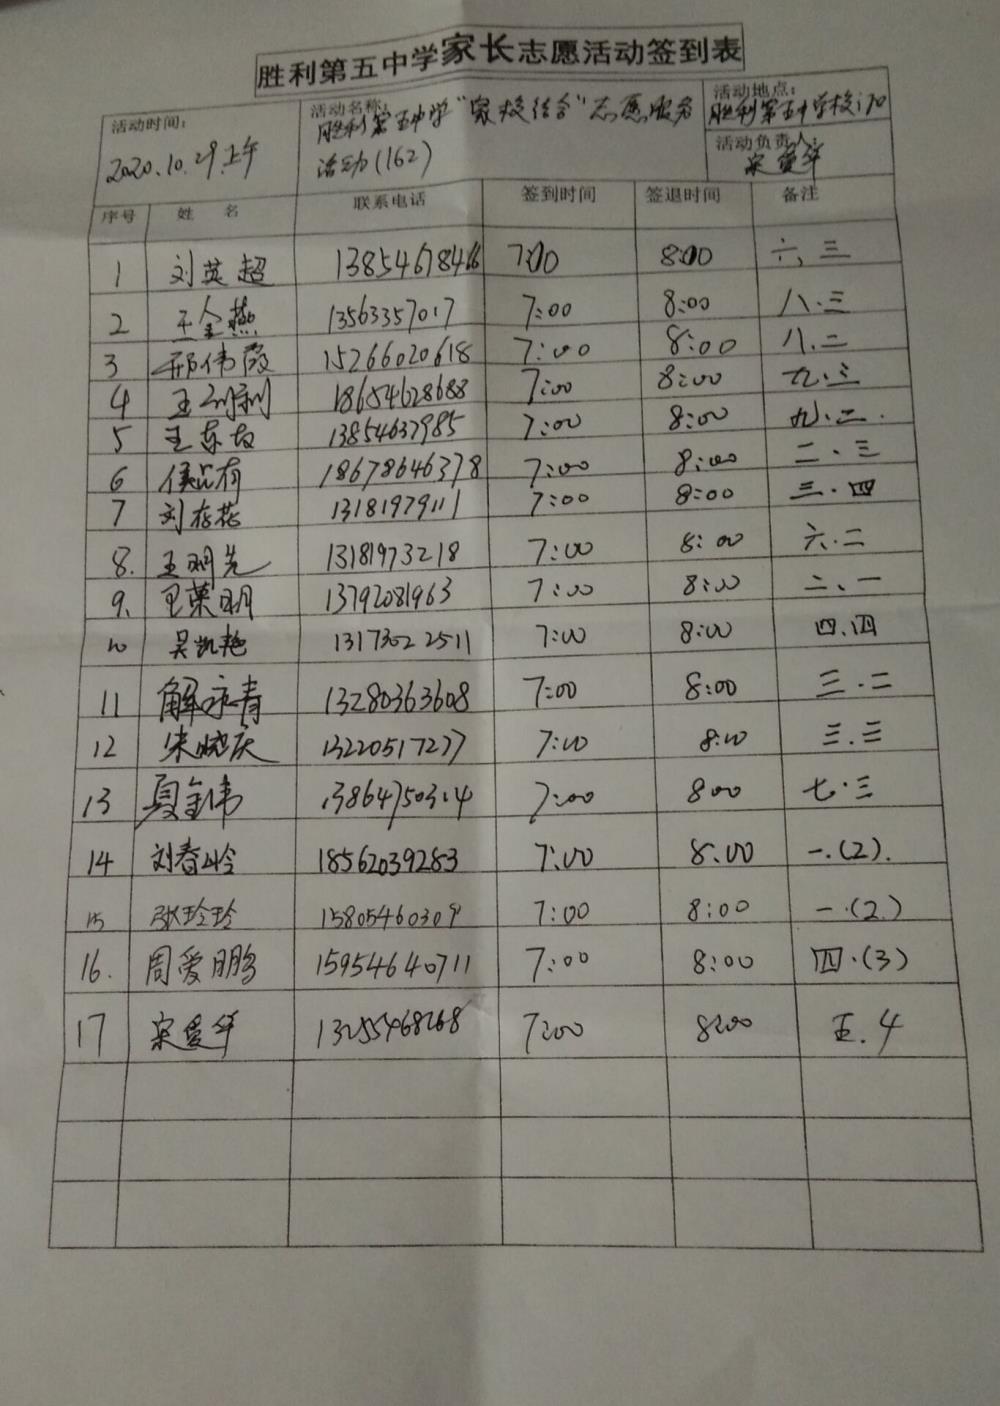 胜利第五中学家长志愿活动签到表
活动时间：
2020.10.29.上午
活动名称：
胜利第五中学“家校结合”志愿服务
活动(162)
活动地点：
胜利第五中学校门口
活动负责人：
宋爱华
序号 姓 名 联系电话 签到时间 签退时间 备注
1 刘英超 7:00 8:00 六、三
2 王金燕 13563357017 7:00 8:00 八.三
3 邢伟霞 15266020618 7:00 8:00 八.二
4 王利利 18654628688 7:00 8:00 九.三
5 王东 13854637985 7:00 8:00 九.二.
6 侯占有 18678646378 7:00 8:00 二.三
7 刘存花 13181979111 7:00 8:00 三.四
8. 王明先 13181973218 7:00 8:00 六.二
9. 荣明 13792081963 7:00 8:00 二、一
10 吴凯艳 13173022511 7:00 8:00 四.四
11 解永青 13280363608 7:00 8:00 三.二
12 朱晓庆 13220517277 7:00 8:00 三.三
13 夏金伟 13864750314 7:00 8:00 七.三
14 刘春岭 18562039283 7:00 8:00 一.(2).
15 张玲玲 15805460309 7:00 8:00 一.(2.)
16. 周爱鹏 15954640711 7:00 8:00 四.(3)
17 宋爱华 13255468268 7:00 8:00 五.4